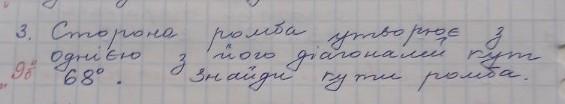 3. Сторона ромба утворює з
однією з його діагоналей кут
68°. Знайди кути ромба.